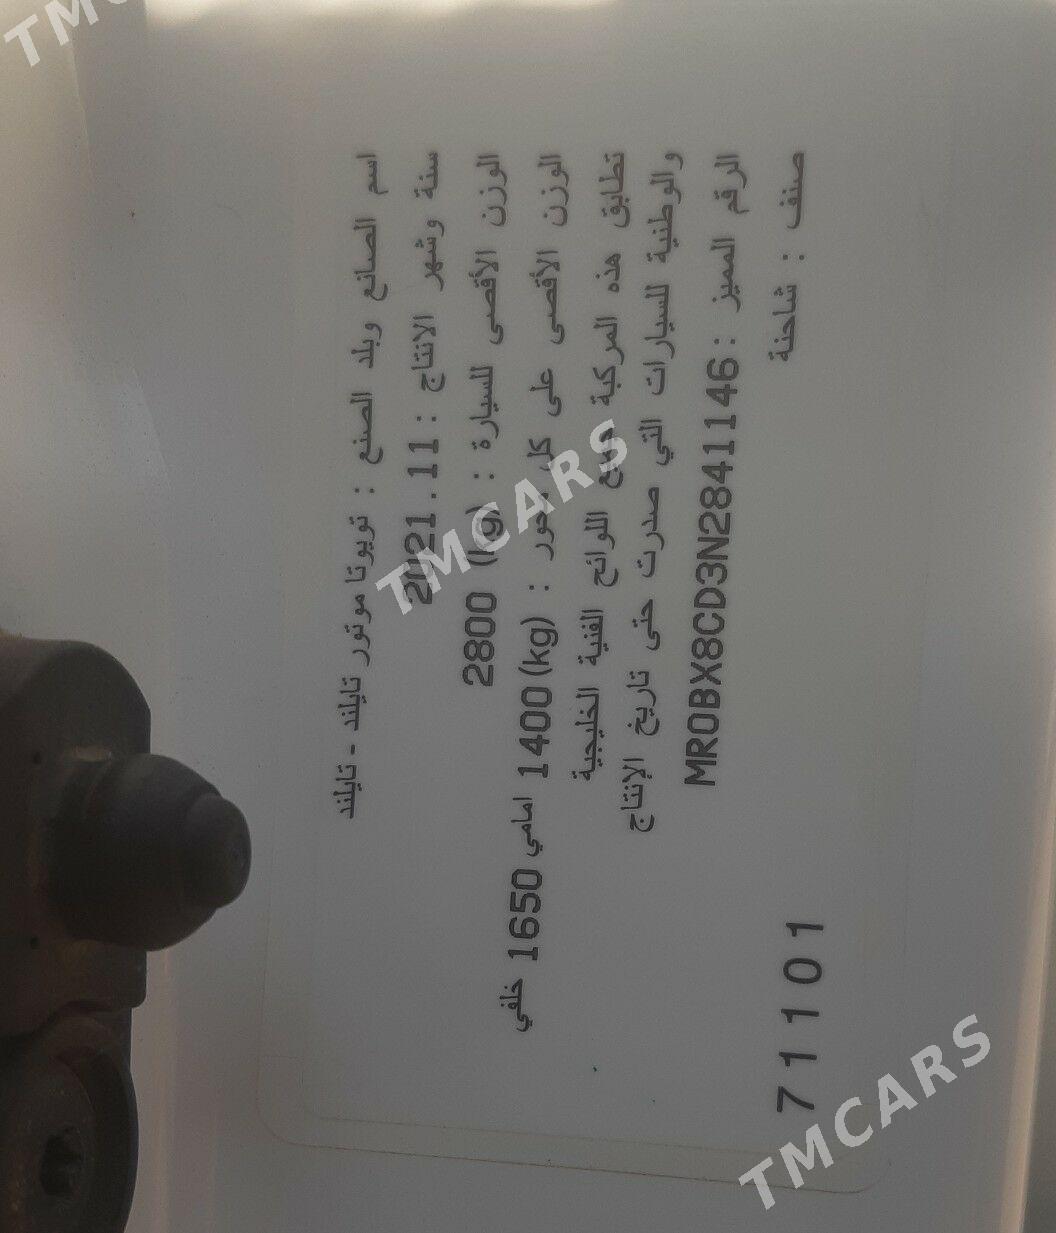 اسم الصانع وبلد الصنع : تويوتا موتور تايلند - تايلند
سنة وشهر الانتاج : 2021.11
الوزن الأقصى للسيارة : 2800 (kg)
الوزن الأقصى على كل محور : 1400(kg) امامي 1650 خلفي
تطابق هذه المركبة جميع اللوائح الفنية الخليجية
والوطنية للسيارات التي صدرت حتى تاريخ الإنتاج
الرقم المميز : MR0BX8CD3N2841146
صنف : شاحنة
71101
TMCARS
TMCARS